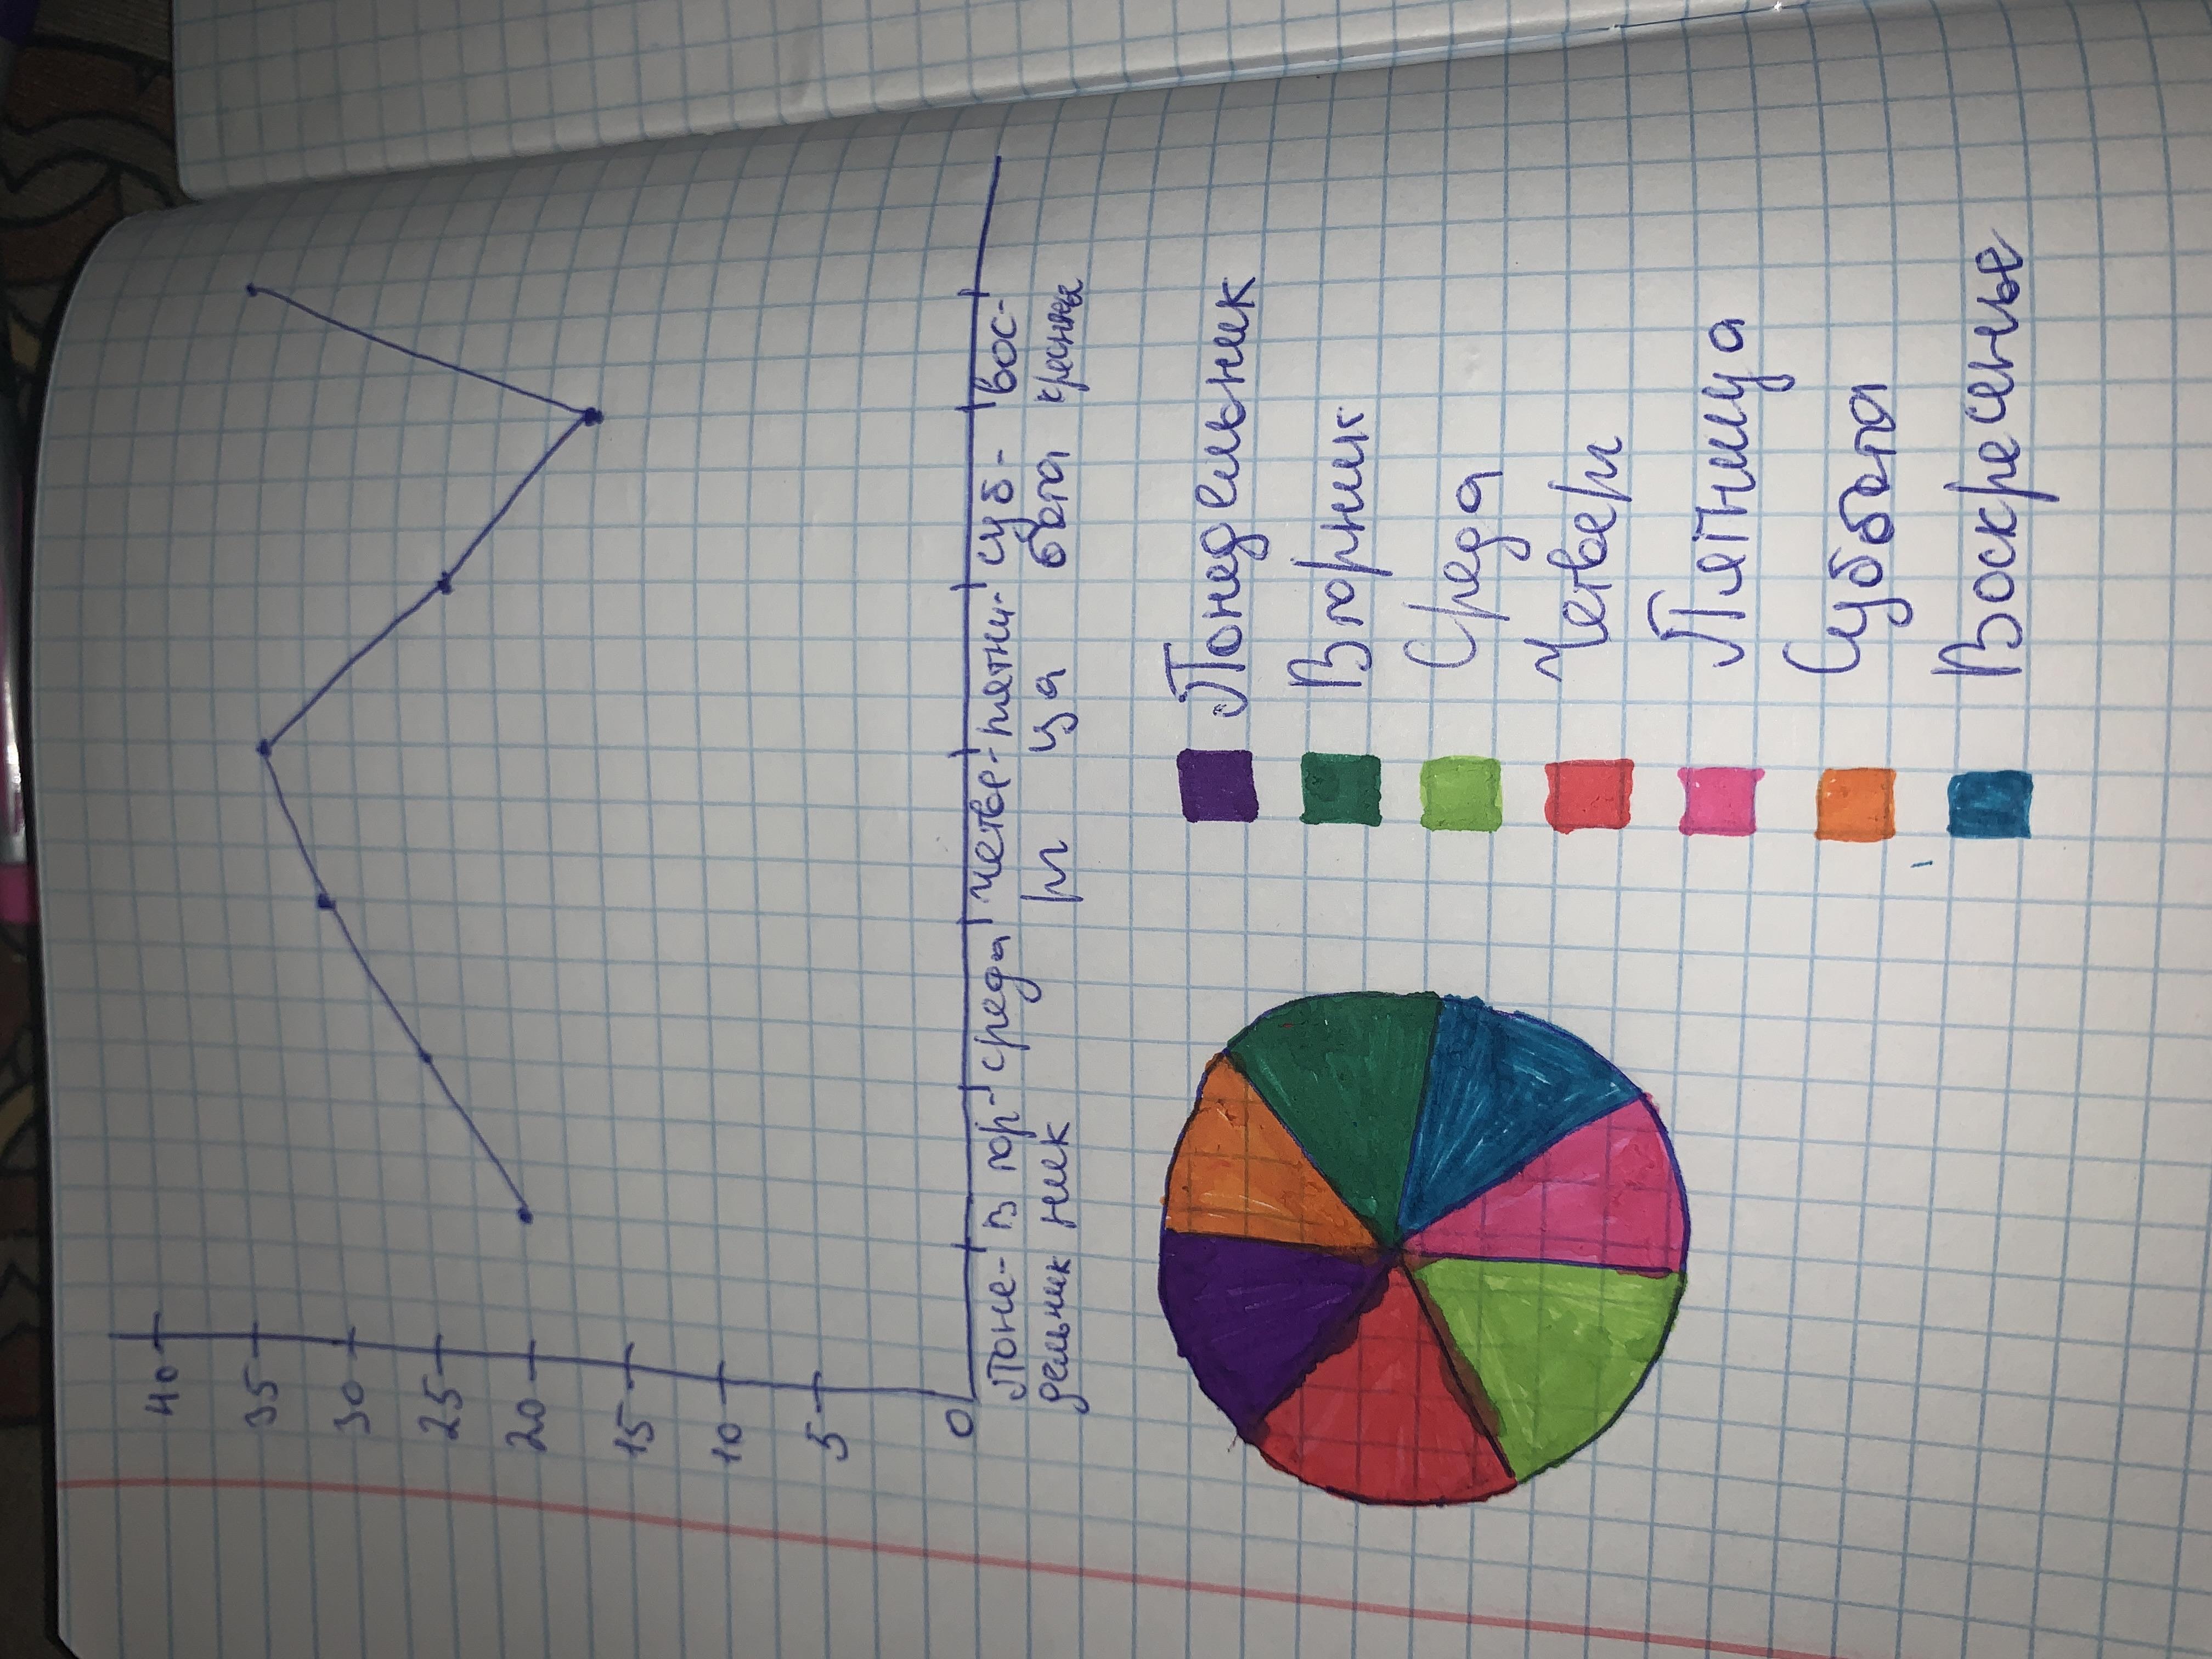 40
35
30
25
20
15
10
5
0
Поне- втор- среда четве- пятни- суб- вос-
дельник ник рг ца бота кресенье
Понедельник
Вторник
Среда
Четверг
Пятница
Суббота
Воскресенье